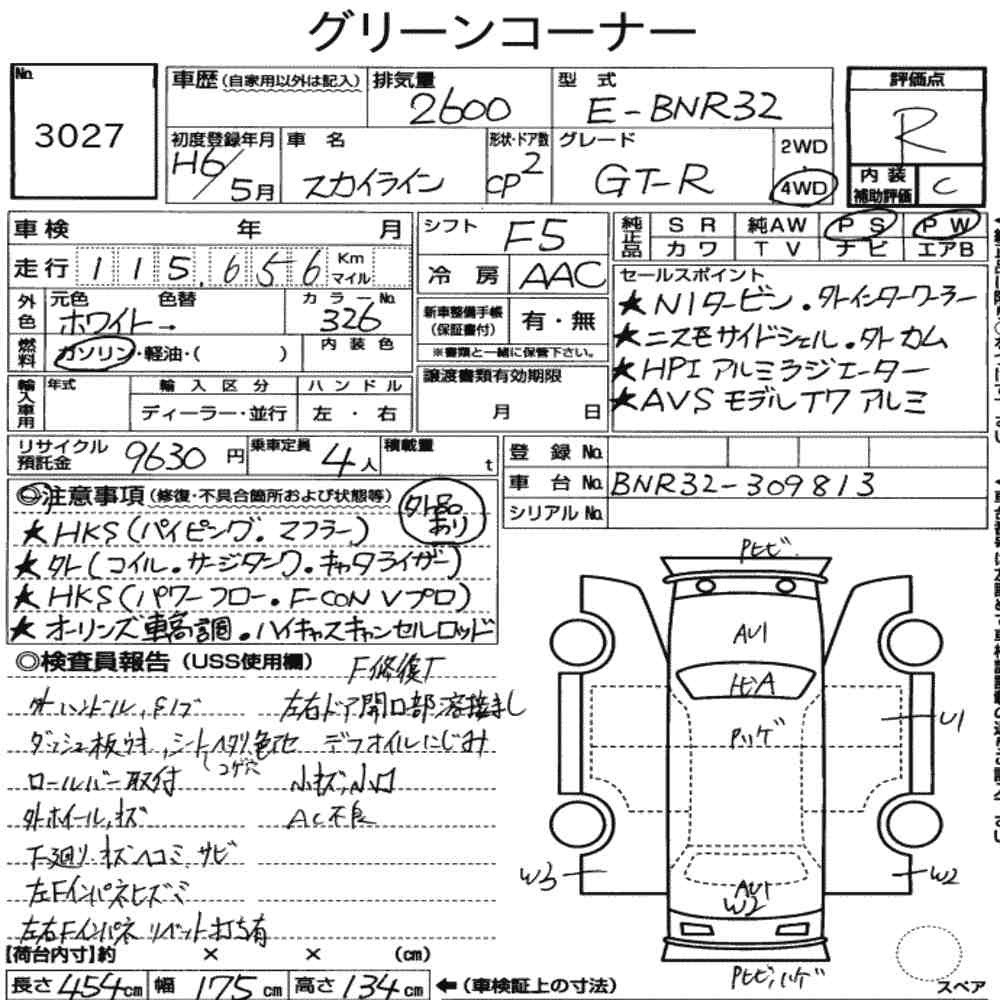 グリーンコーナー
No.
3027
車歴(自家用以外は記入)
排気量
2600
型 式
E-BNR32
評価点
R
初度登録年月
H6/5月
車 名
スカイライン
形状・ドア数
CP 2
グレード
GT-R
2WD
4WD
内 装
補助評価
C
車検 年 月
走行 115,656 Km マイル
シフト F5
冷 房 AAC
純正品
S R 純AW P S P W
カワ T V ナビ エアB
外色
元色 色替
ホワイト→
カラーNo.
326
燃料
ガソリン・軽油・( )
内 装 色
新車整備手帳
(保証書付)
有・無
※書類と一緒に保管下さい。
セールスポイント
★N1タービン・外インタークーラー
★ニスモサイドシェル・外カム
★HPIアルミラジエーター
★AVSモデルT7アルミ
輸入車用
年式
輸 入 区 分
ディーラー・並行
ハ ン ド ル
左 ・ 右
譲渡書類有効期限
月 日
リサイクル
預託金
9630円
乗車定員
4人
積載量
t
登 録 No.
車 台 No. BNR32-309813
シリアル No.
◎注意事項(修復・不具合箇所および状態等)
外品
あり
★HKS(パイピング・マフラー)
★外(コイル・サージタンク・キャタライザー)
★HKS(パワーフロー・F-CON Vプロ)
★オーリンズ車高調・ハイキャスキャンセルロッド
◎検査員報告(USS使用欄)
F修復歴
外ハンドル,
左右ドア開口部溶接まし
ダッシュ板ウキ,シートヘタリ色アセ
コゲ穴
デフオイルにじみ
ロールバー取付
小キズ,小凹
外ホイール,キズ
AC不良
下廻り,キズヘコミ,サビ
左Fインパネヒズミ
左右Fインパネ リベット打ち有
【荷台内寸】約 × × (cm)
長さ454cm 幅 175cm 高さ134cm
←(車検証上の寸法)
Pヒビ
AU1
ヒビA
Pハゲ
U1
W3
AU1
W2
W2
Pヒビ,ハゲ
スペア